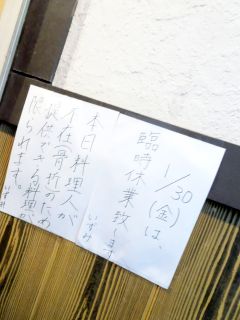 1/30(金)は、
臨時休業致します
いずみ
本日料理人が
不在(骨折)のため
提供できる料理が
限られます。
いずみ